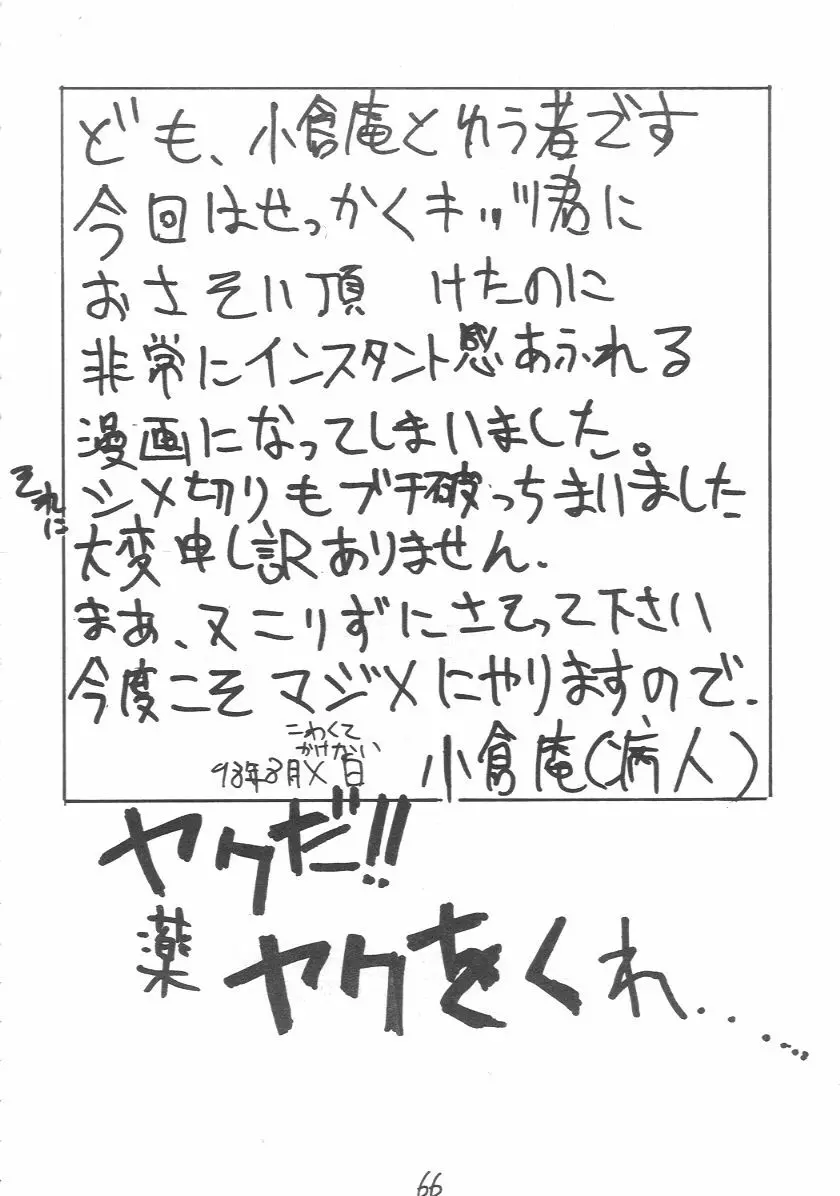 ども、小倉庵とゆう者です
今回はせっかくキッヅ君に
おさそい頂 けたのに
非常にインスタント感あふれる
漫画になってしまいました。
それに
シメ切りもブチ破っちまいました
大変申し訳ありません.
まあ、又こりずにさそって下さい
今度こそマジメにやりますので.
こわくて
かけない
93年8月×日
小倉庵(病人)
ヤクだ!!
薬 ヤクをくれ......
66